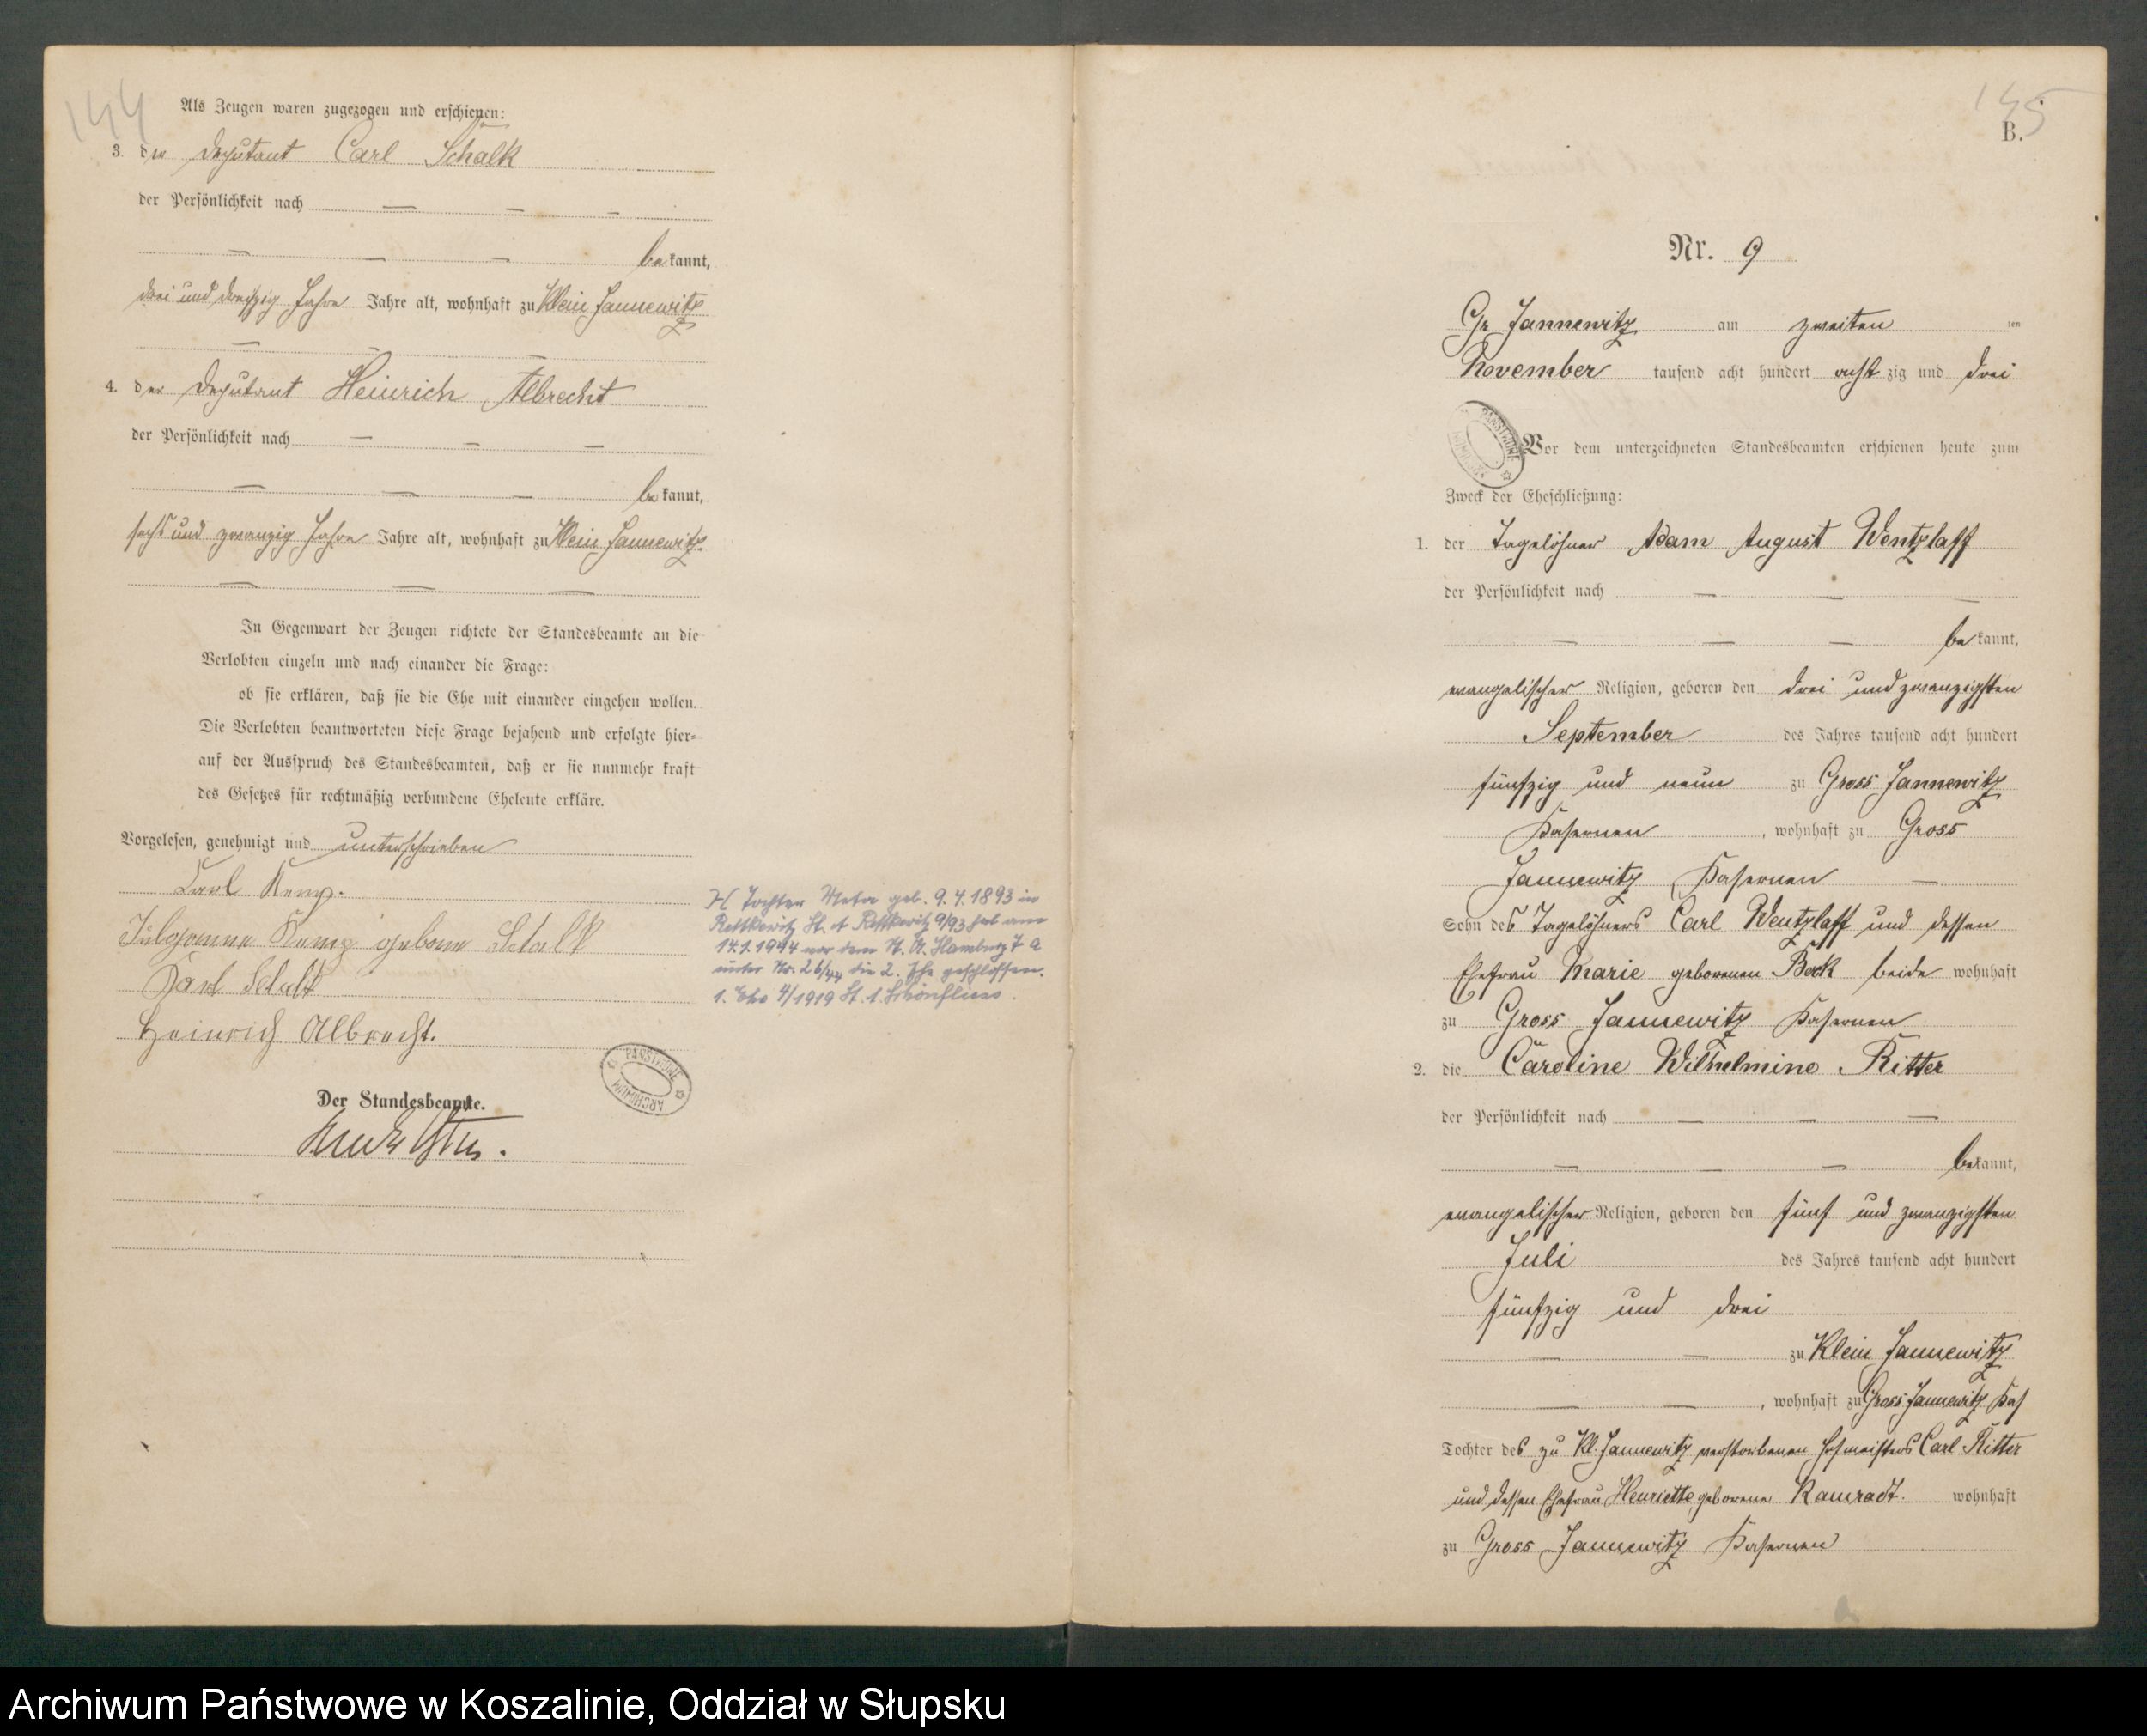 144
Als Zeugen waren zugezogen und erschienen:
3. der Deputant Carl Schalk
der Persönlichkeit nach — — —
— — — bekannt,
drei und dreißig Jahre Jahre alt, wohnhaft zu Klein Jannewitz
— — —
4. der Deputant Heinrich Albrecht
der Persönlichkeit nach — — —
— — — bekannt,
sechs und zwanzig Jahre Jahre alt, wohnhaft zu Klein Jannewitz
— — —
In Gegenwart der Zeugen richtete der Standesbeamte an die
Verlobten einzeln und nach einander die Frage:
ob sie erklären, daß sie die Ehe mit einander eingehen wollen.
Die Verlobten beantworteten diese Frage bejahend und erfolgte hier-
auf der Ausspruch des Standesbeamten, daß er sie nunmehr kraft
des Gesetzes für rechtmäßig verbundene Eheleute erkläre.
Vorgelesen, genehmigt und unterschrieben
Carl
geborne Schalk
Karl Schalk
Heinrich Albrecht.
Der Standesbeamte.
ARCHIWUM PAŃSTWOWE
Tochter Meta geb. 9.4.1893 in
Rettkewitz St. A Rettkewitz 9/93 hat am
14.1.1944 vor dem St. A. Hamburg 7 a
unter Nr. 26/44 die 2. Ehe geschlossen.
1. Ehe 4/1919 St. A. Schönfliess.
145
B.
Nr. 9
Gr Jannewitz am zweiten ten
November tausend acht hundert acht zig und drei
ARCHIWUM PAŃSTWOWE
Vor dem unterzeichneten Standesbeamten erschienen heute zum
Zweck der Eheschließung:
1. der Tagelöhner Adam August Wentzlaff
der Persönlichkeit nach — — —
— — — bekannt,
evangelischer Religion, geboren den drei und zwanzigsten
September des Jahres tausend acht hundert
fünfzig und neun zu Gross Jannewitz
Kasernen, wohnhaft zu Gross
Jannewitz Kasernen —
Sohn des Tagelöhners Carl Wentzlaff und dessen
Ehefrau Marie geborenen Bock beide wohnhaft
zu Gross Jannewitz Kasernen
2. die Caroline Wilhelmine Ritter
der Persönlichkeit nach — — —
— — — bekannt,
evangelischer Religion, geboren den fünf und zwanzigsten
Juli des Jahres tausend acht hundert
fünfzig und drei
— — zu Klein Jannewitz
— —, wohnhaft zu Gross Jannewitz Kas
Tochter des zu Kl. Jannewitz verstorbenen Hofmeisters Carl Ritter
und dessen Ehefrau Henriette geborene Kamradt. wohnhaft
zu Gross Jannewitz Kasernen
Archiwum Państwowe w Koszalinie, Oddział w Słupsku